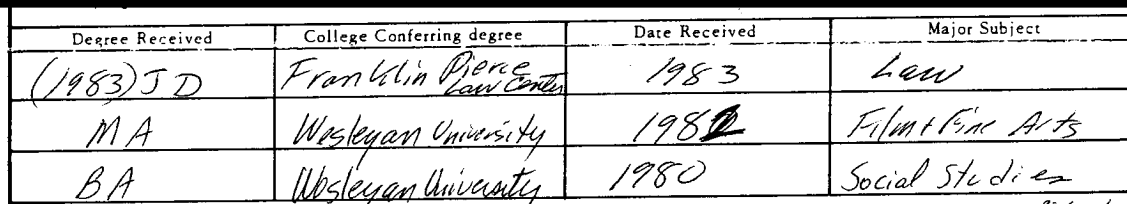 Degree Received College Conferring degree Date Received Major Subject
(1983) JD Franklin Pierce Law Center 1983 Law
MA Wesleyan University 1982 Film + Fine Arts
BA Wesleyan University 1980 Social Studies